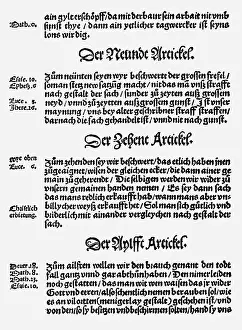 Math. 0.
ain gylterschöpff/da mit der baur sein arbait nit vmb
sunst thye/ dann ain yetlicher tagwercker ist seyns
lons wirdig.
Der Neunde Artickel.
Esaie. 10.
Ephes. 6.
Luc. 3.
Jhere. 26.
Zům neünten seyen wyr beschwertt der grossen frefel/
so man stetz new satzug macht/ nit das mã vnß strafft
nach gestalt der sach/ sunder zů zeyten auß grossem
neyd/ vnd zů zeytten auß grossem gunst/ Ist vnser
maynung/ vns bey alter geschribner straff straffen/
darnach die sach gehandelt ist/ vnd nit nach gunst.
Der Zehent Artickel.
wye oben
Luc. 6.
Christlich
erbietung.
Zům zehenden sey wir beschwert/ das etlich haben jnen
zůgeaignet/ wisen der gleichen ecker/ die dann einer ge
main zů geherendt. Dieselbigen werden wir wider zů
vnsern gemainen handen nemen/ Es sey dann sach
das mans redlich erkaufft hab/ wann mans aber vn
billycher weyß erkaufft het/ Sol man sich gütlich vnd
briederlich mit ainander vergleychen nach gestalt der
sach.
Der Aylfft Artickel.
Deut. 18.
Math. 8.
Math. 23.
Esaie. 10.
Zům ailften wellen wir den brauch genant den todt
fall gantz vnd gar abthůn haben/ Den nimer leiden
noch gestatten/ das man witwen waisen das jr wider
Gott vnd eeren/ also schentlich nemen berauben sol/ wie
es an vil orten (menigerlay gestalt) geschehen ist/ vnd
von den/ so sy besitzen vnd beschirmen solten/ hand sy vns